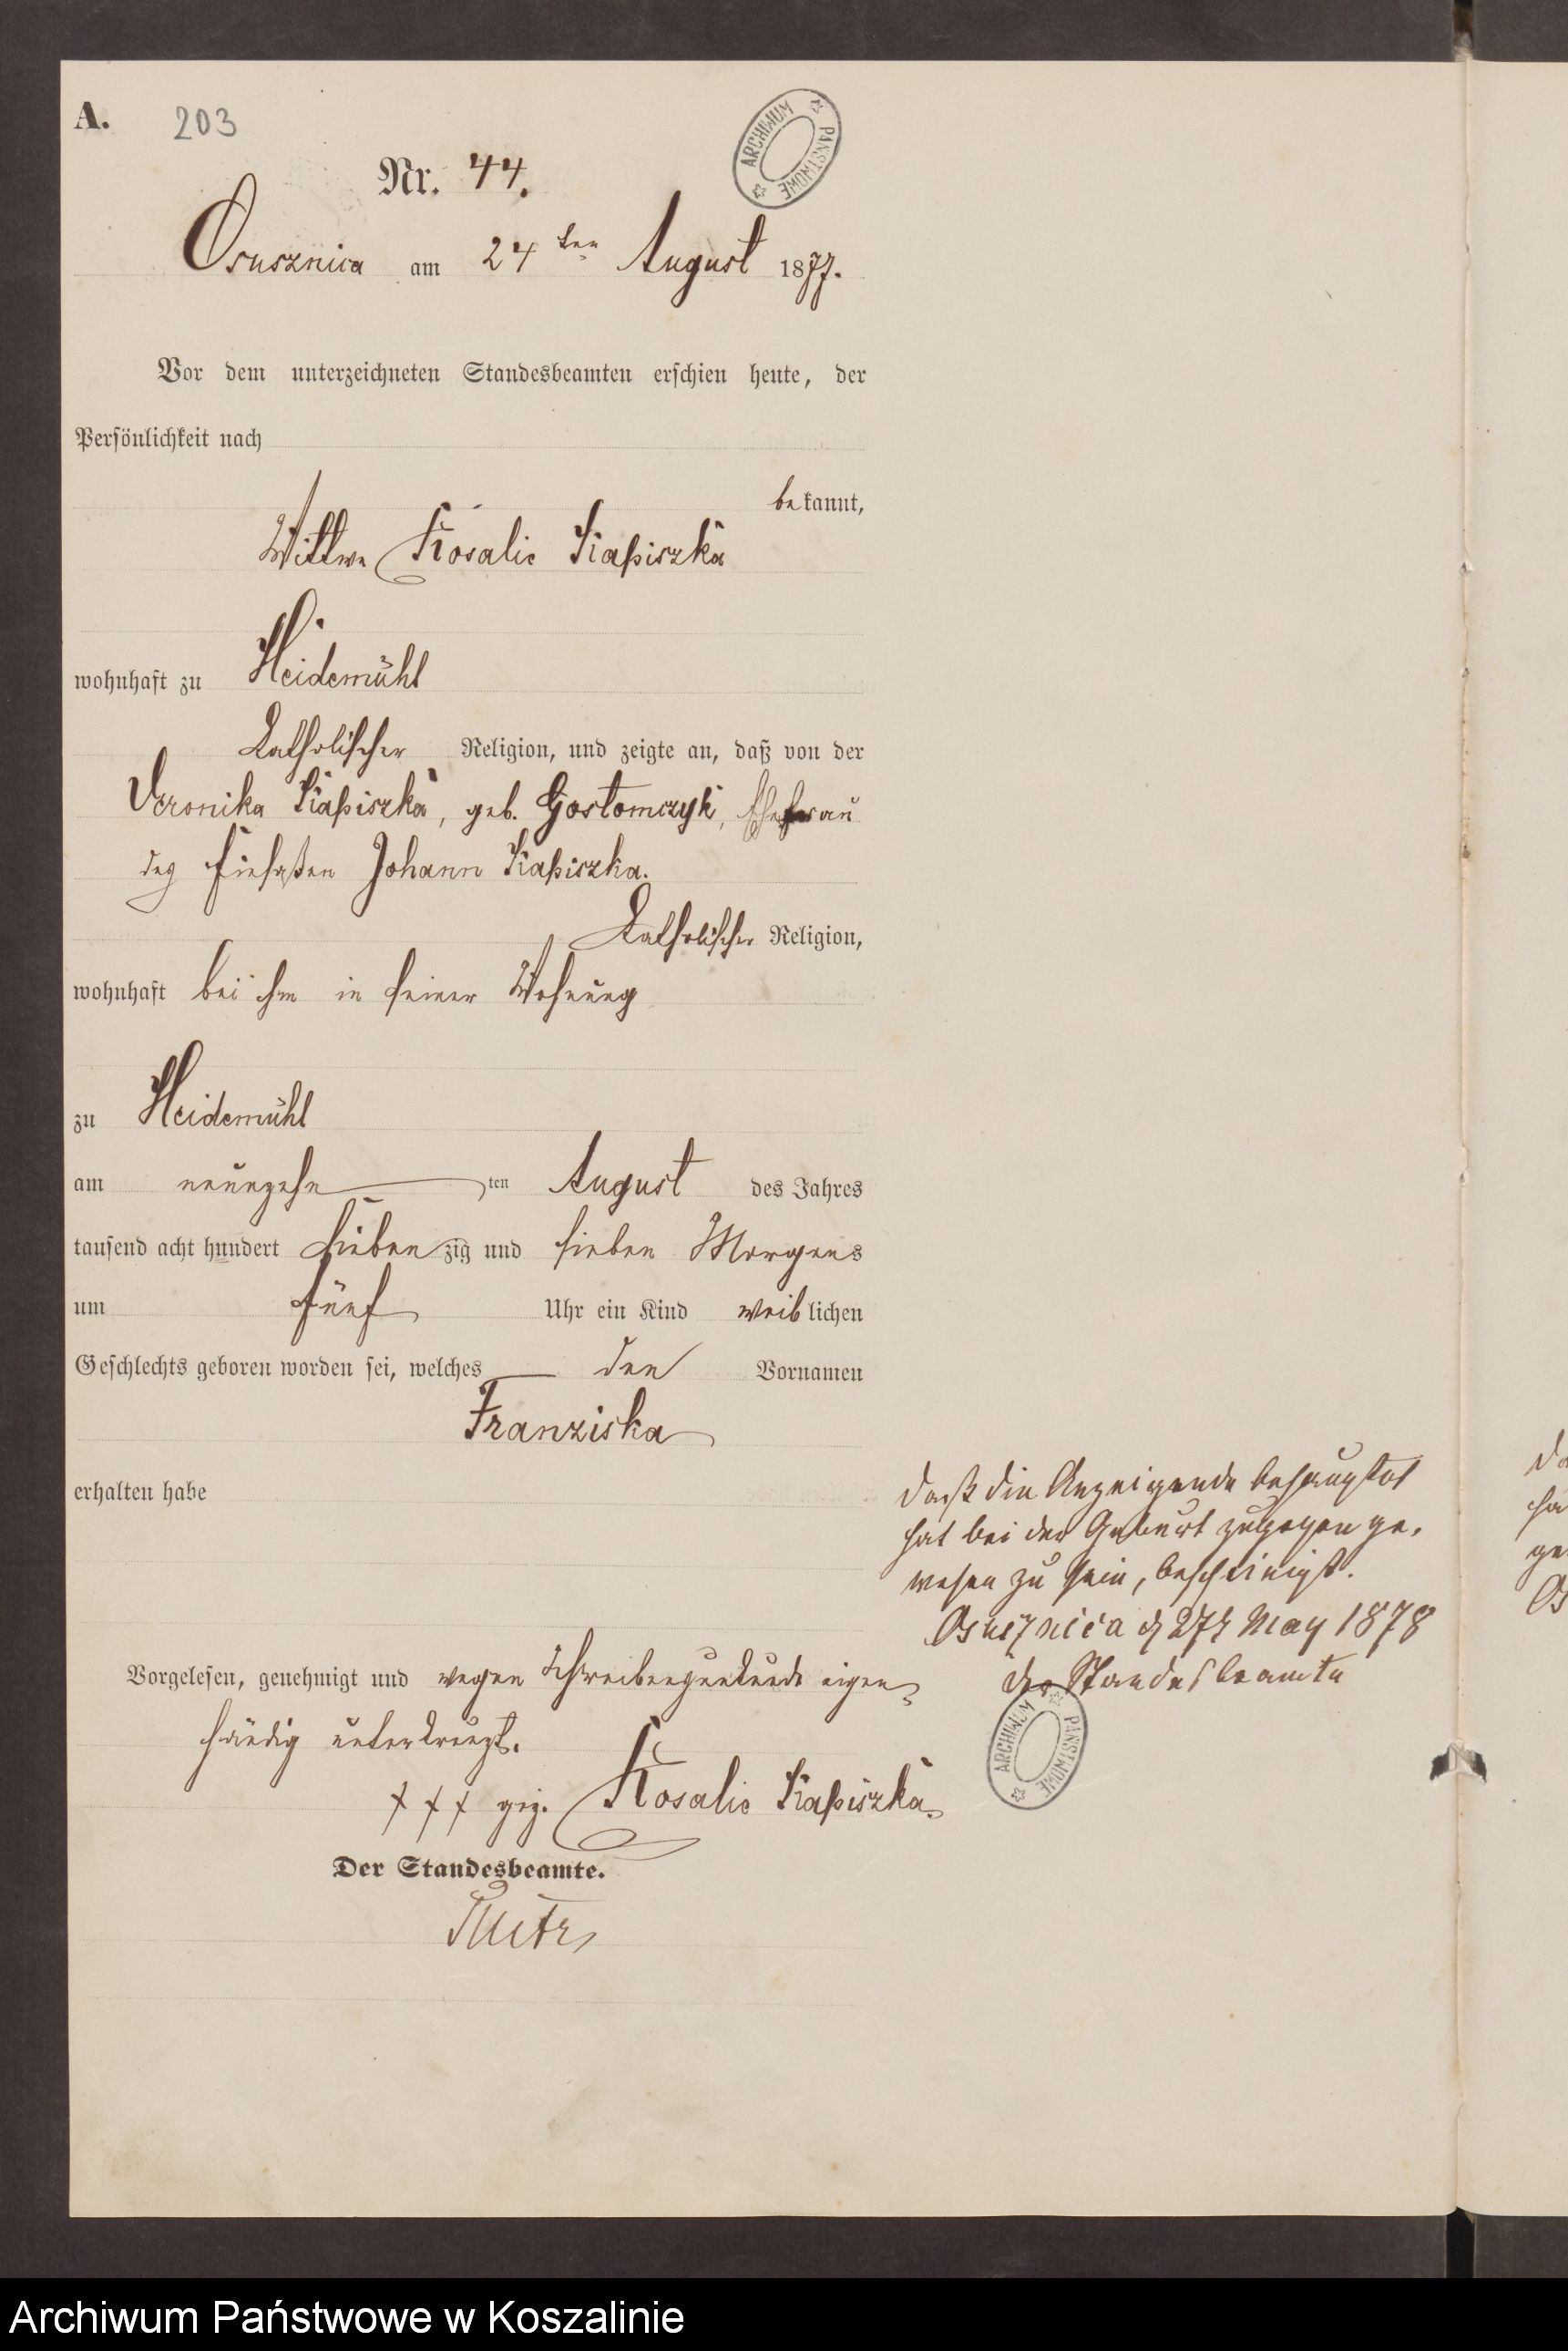 A. 203
ARCHIWUM PAŃSTWOWE
Nr. 44.
Osusznica am 24ten August 1877.
Vor dem unterzeichneten Standesbeamten erschien heute, der
Persönlichkeit nach
bekannt,
Wittwe Rosalie Kapiszka
wohnhaft zu Heidemühl
Katholischer Religion, und zeigte an, daß von der
Veronika Kapiszka, geb. Gostomczyk, Ehefrau
des Johann Kapiszka.
Katholischer Religion,
wohnhaft bei ihm in seiner Wohnung
zu Heidemühl
am neunzehn ten August des Jahres
tausend acht hundert siebenzig und sieben Morgens
um fünf Uhr ein Kind weiblichen
Geschlechts geboren worden sei, welches den Vornamen
Franziska
erhalten habe
Vorgelesen, genehmigt und wegen Schreibensunkunde eigen-
händig unterkreuzt.
+++ gez. Rosalie Kapiszka
Der Standesbeamte.
daß die Anzeigende behauptet
hat bei der Geburt zugegen ge-
wesen zu sein, bescheinigt.
Osusznica d 27t May 1878
der Standesbeamte
ARCHIWUM PAŃSTWOWE
Archiwum Państwowe w Koszalinie